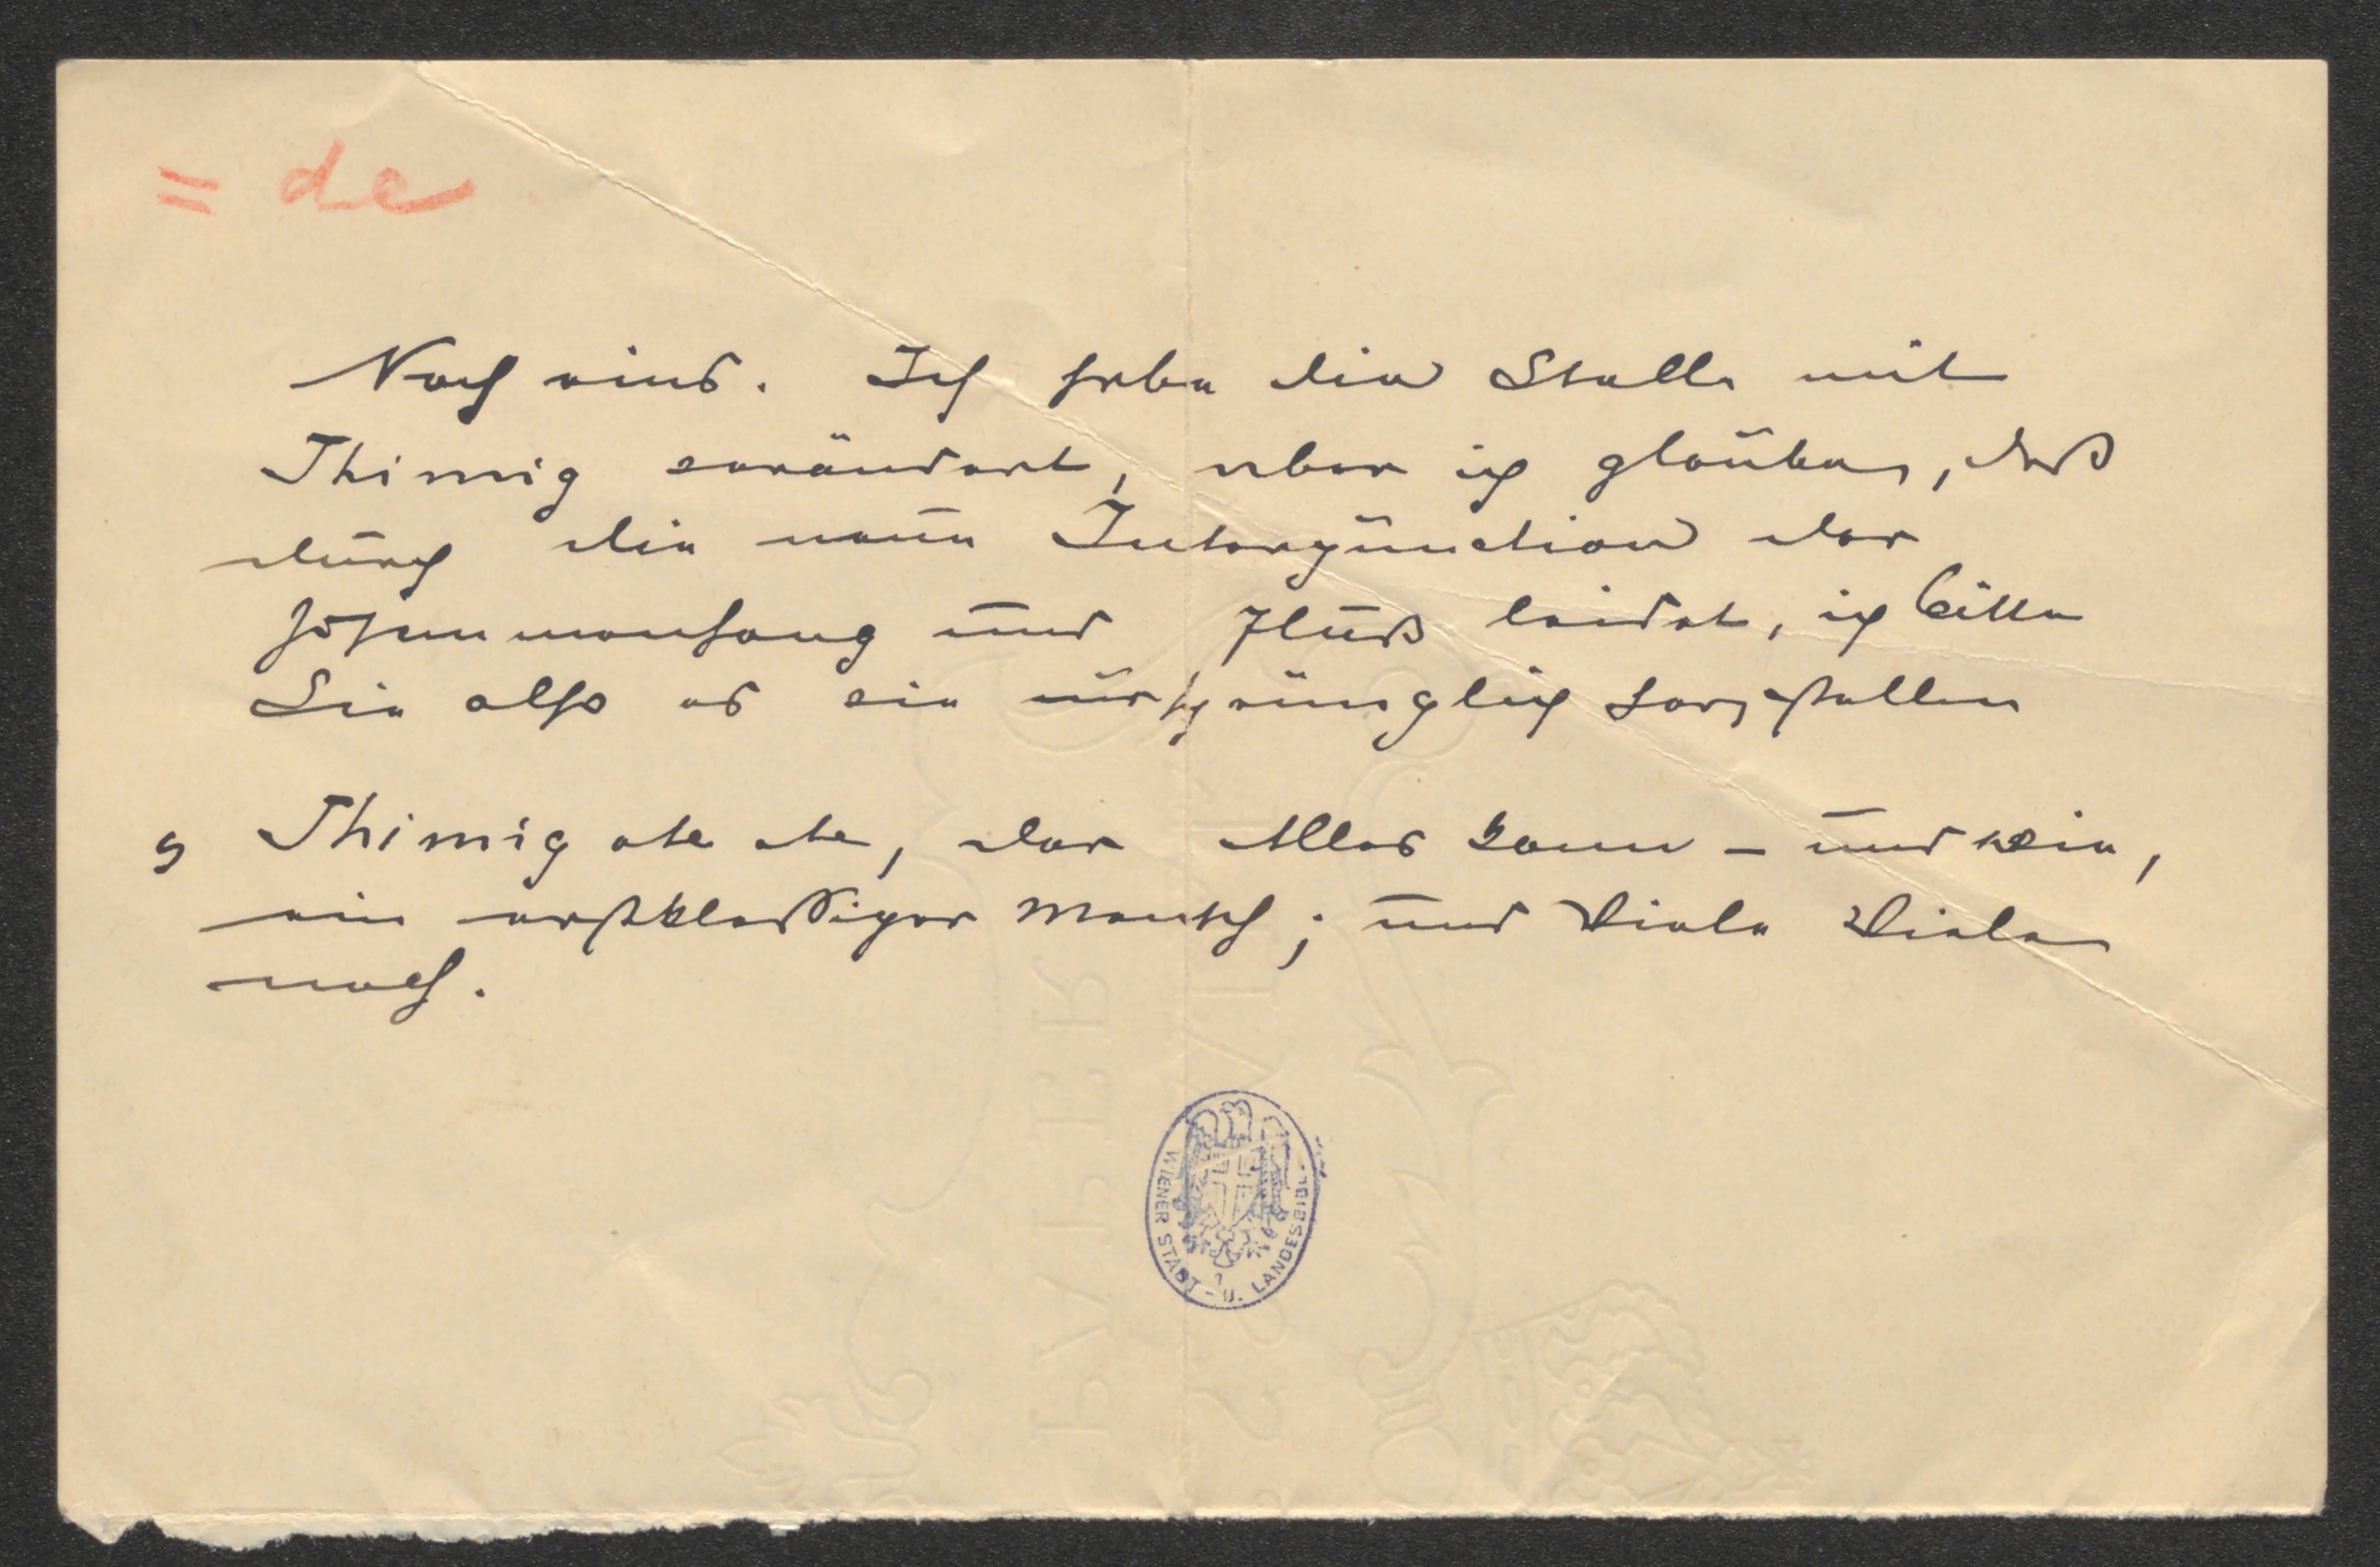 = de
Noch eins. Ich habe die Stelle mit
Thimig verändert, aber ich glaube, daß
durch die neue Interpunction der
Zusammenhang und Fluß leidet, ich bitte
Sie also es wie ursprünglich herzustellen
Thimig etc etc, der Alles kann – und wie,
ein erstklassiger Mensch; und Viele Viele
noch.
WIENER STADT- U. LANDESBIBL.